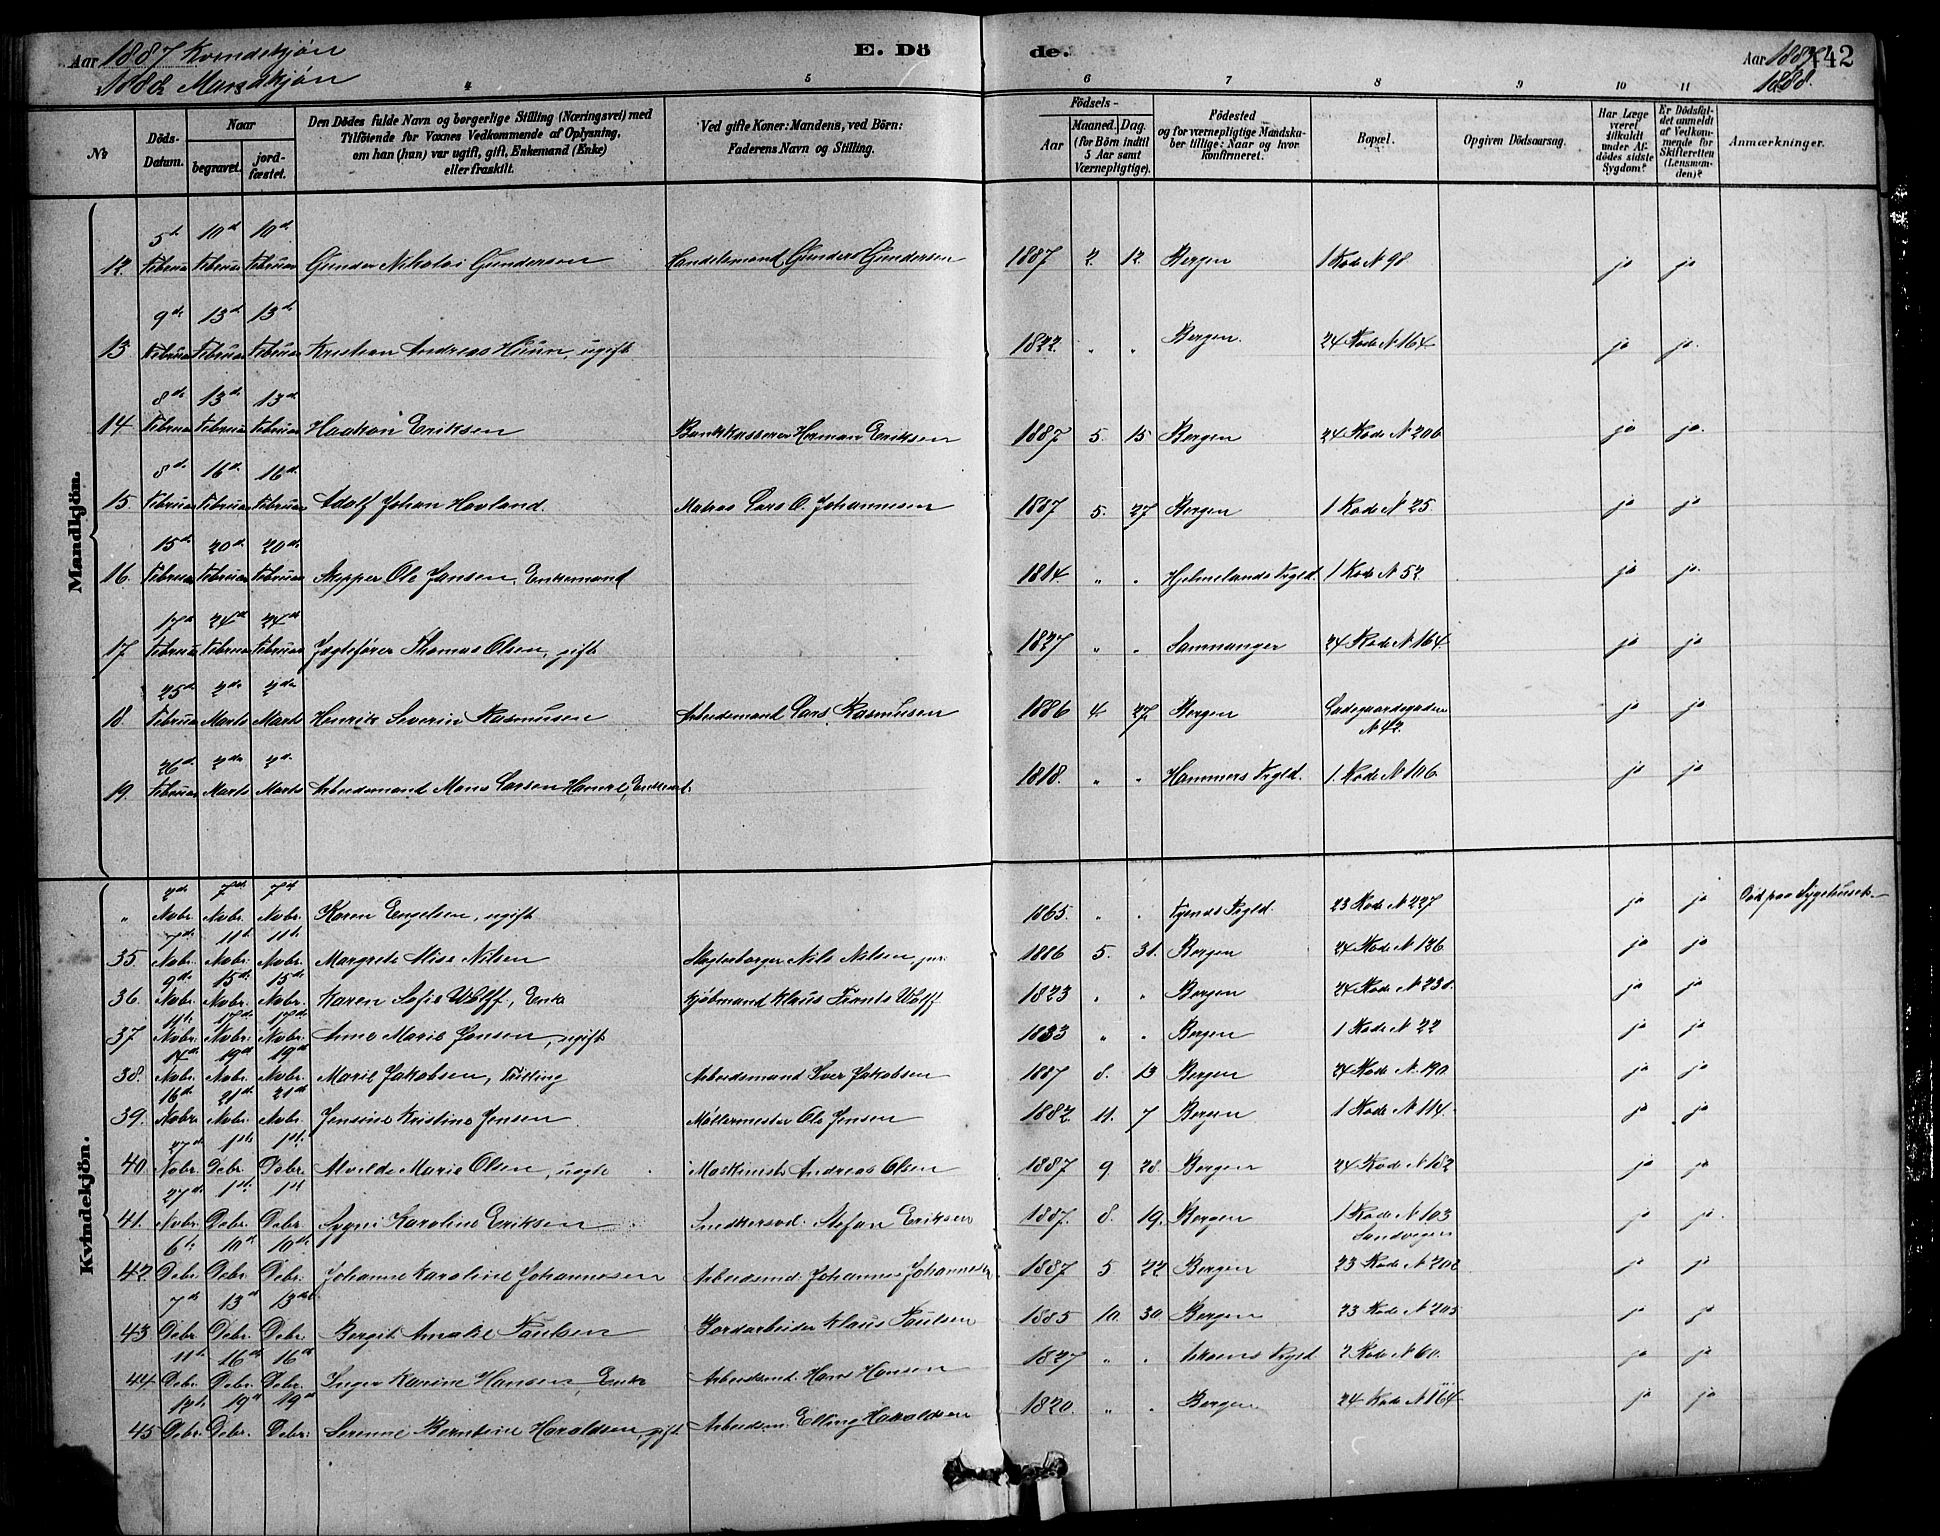 Aar 1887 Kvindekjön
1888 Mandkjön
E. Dö de.
Aar 1887 442
1888.
4 5 6 7 8 9 10 11
No
Döds-Datum.
Naar
begravet.
jordfæstet.
Den Dödes fulde Navn og borgerlige Stilling (Næringsvei) med
Tilföiende for Voxnes Vedkommende af Oplysning,
om han (hun) var ugift, gift, Enkemand (Enke)
eller fraskilt.
Ved gifte Koner: Mandens, ved Börn:
Faderens Navn og Stilling.
Födsels-
Aar
Maaned. Dag.
(for Börn indtil
5 Aar samt
Værnepligtige).
Födested
og for værnepligtige Mandska-
ber tillige: Naar og hvor
konfirmeret.
Bopæl.
Opgiven Dödsaarsag.
Har Læge
været
tilkaldt
under Af-
dödes sidste
Sygdom?
Er Dödsfal-
det anmeldt
af Vedkom-
mende for
Skifteretten
(Lensman-
den)?
Anmærkninger.
Mandkjön.
5te 10de 10de
12 Februar Februar Februar Gunder Nikolai Gundersen Handelsmand Gunders Gundersen 1887 2. 12. Bergen 1 Rode N 98 ja ja
9de 13de 13de
13 Februar Februar Februar Kristian Andreas ugift 1822. " " Bergen. 24 Rode N 164 ja ja.
8de 13de 13de
14 Februar Februar Februar Haakon Eriksen Bankkasserer Herman Eriksen 1887 5. 15 Bergen 24 Rode N 206 ja ja.
8de 16de 16de
15. Februar Februar Februar Adolf Johan Havland. Matros Lars O. Johannesen 1887 5. 27 Bergen 1 Rode N 25 ja ja
15de 20de 20de
16. Februar Februar Februar Skipper Ole Jansen, Enkemand 1814. " " Hjelmelands Prgld. 1 Rode N 52 ja ja.
17de 24de 24de
17 Februar Februar Februar Jagtefører Thomas Olsen, gift 1827 " " Samnanger 24 Rode N 164 ja ja
25de 2de 2de
18. Februar Marts Marts Henrik Severin Rasmusen Arbeidsmand Lars Rasmusen 1886 4. 27. Bergen Ladegaardsgaden
N 42. ja ja
26de 2de 2de
19. Februar Marts Marts Arbeidsmand Mons Larsen Enkemd. 1818. " " Hammers Prgld. 1. Rode N 106 ja ja
Kvindekjön.
2de 7de 7de
" Nobr. Nobr. Nobr. Karen Engelsen, ugift 1865. " " Prgld. 23 Rode N 227 ja ja Död paa Sygehuset
7de 11te 11te
35. Nobr. Nobr. Nobr. Margrete Alise Nilsen Nils Nilsen, jr. 1886 5. 31. Bergen 24 Rode N 126 ja ja
9de 15de 15de
36. Nobr. Nobr. Nobr. Karen Sofie Wolff, Enke Kjöbmand Klaus Wolff 1823 " " Bergen 24 Rode N 230. ja ja
11te 17de 17de
37 Nobr. Nobr. Nobr. Anne Marie Jensen, ugift 1833 " " Bergen 1 Rode N 22 ja ja
14de 19de 19de
38. Nobr. Nobr. Nobr. Marie Jakobsen, Tvilling Arbeidsmand Iver Jakobsen 1887 8. 13 Bergen 24 Rode N 190 ja ja
16de 21de 21de
39. Nobr. Nobr. Nobr. Jensine Kristine Jensen Möllermester Ole Jensen 1882. 11. 7 Bergen 1 Rode N 114. ja ja
27de 1ste 1ste
40 Nobr. Debr. Debr. Alvilde Marie Olsen, uægte Maskinist Andreas Olsen 1887 9 28. Bergen 24 Rode N 182 ja ja
27de 1ste 1ste
41. Nobr. Debr. Debr. Sygni Karoline Eriksen Snedkersvd. Stefan Eriksen 1887. 8. 19. Bergen 1 Rode N 103
Sandvigen ja ja.
6te 10de 10de
42. Debr. Debr. Debr. Johanne Karoline Johannesen Arbeidsmd. Johannes Johannesen 1887 5. 22 Bergen 23 Rode N 202 ja ja
7de 13de 13de
43 Debr. Debr. Debr. Bergit Amalie Paulsen Jordarbeider Klaus Paulsen 1885 10. 30 Bergen 23 Rode N 205 ja ja
11te 16de 16de
44. Debr. Debr. Debr. Inger Karine Hansen, Enke Arbeidsmd. Hans Hansen 1827 " " Askøens Prgld. 2 Rode N 60. ja ja
12te 19de 19de
45 Debr. Debr. Debr. Serenne Berntine Haraldsen, gift Arbeidsm. Elling Haraldsen 1820. " " Bergen 24 Rode N 164 ja ja